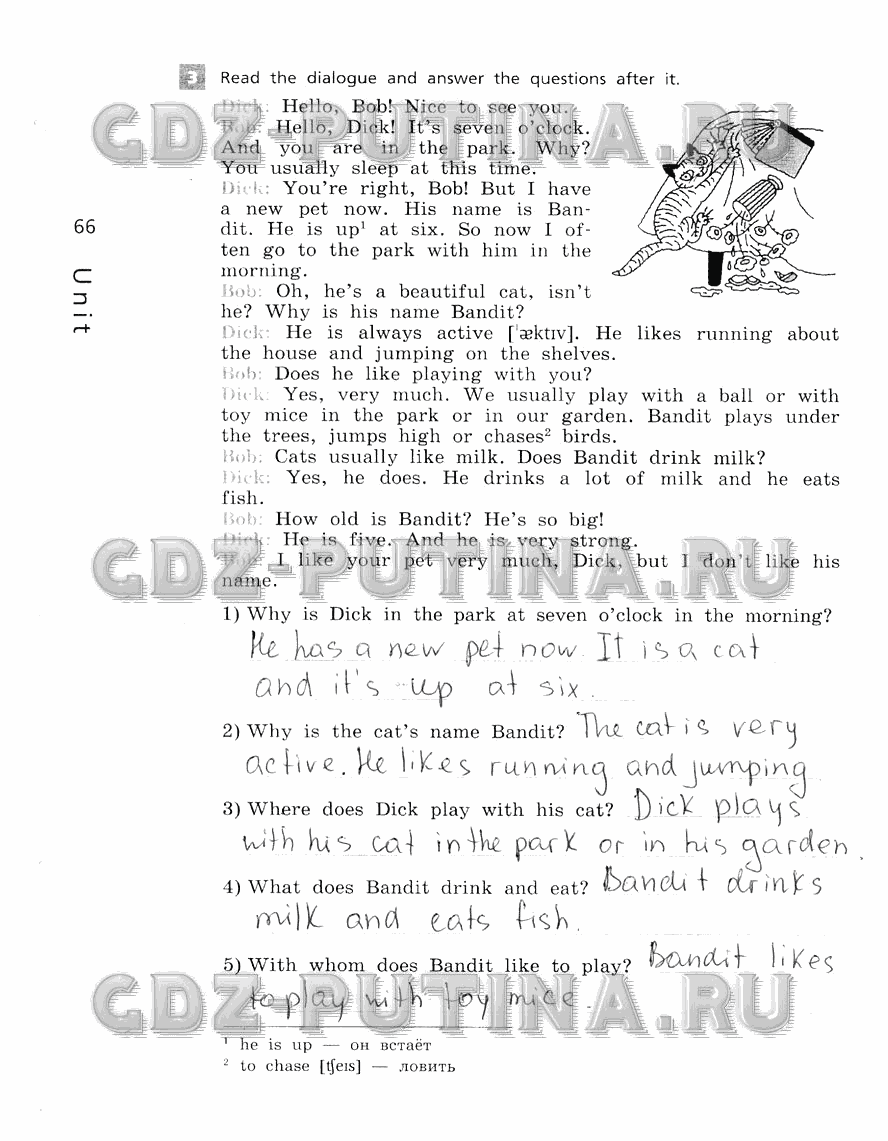 3 Read the dialogue and answer the questions after it.
Dick: Hello, Bob! Nice to see you.
GDZ-PUTINA.RU
Bob: Hello, Dick! It's seven o'clock.
And you are in the park. Why?
You usually sleep at this time.
Dick: You're right, Bob! But I have
a new pet now. His name is Ban-
66
dit. He is up¹ at six. So now I of-
ten go to the park with him in the
morning.
Unit
Bob: Oh, he's a beautiful cat, isn't
he? Why is his name Bandit?
Dick: He is always active [ˈæktɪv]. He likes running about
the house and jumping on the shelves.
Bob: Does he like playing with you?
Dick: Yes, very much. We usually play with a ball or with
toy mice in the park or in our garden. Bandit plays under
the trees, jumps high or chases² birds.
Bob: Cats usually like milk. Does Bandit drink milk?
Dick: Yes, he does. He drinks a lot of milk and he eats
fish.
Bob: How old is Bandit? He's so big!
Dick: He is five. And he is very strong.
GDZ-PUTINA.RU
Bob: I like your pet very much, Dick, but I don't like his
name.
1) Why is Dick in the park at seven o'clock in the morning?
He has a new pet now. It is a cat
and it's up at six.
2) Why is the cat's name Bandit? The cat is very
active. He likes running and jumping
3) Where does Dick play with his cat? Dick plays
with his cat in the park or in his garden.
4) What does Bandit drink and eat? Bandit drinks
milk and eats fish.
5) With whom does Bandit like to play? Bandit likes
to play with toy mice.
GDZ-PUTINA.RU
¹ he is up — он встаёт
² to chase [tʃeɪs] — ловить